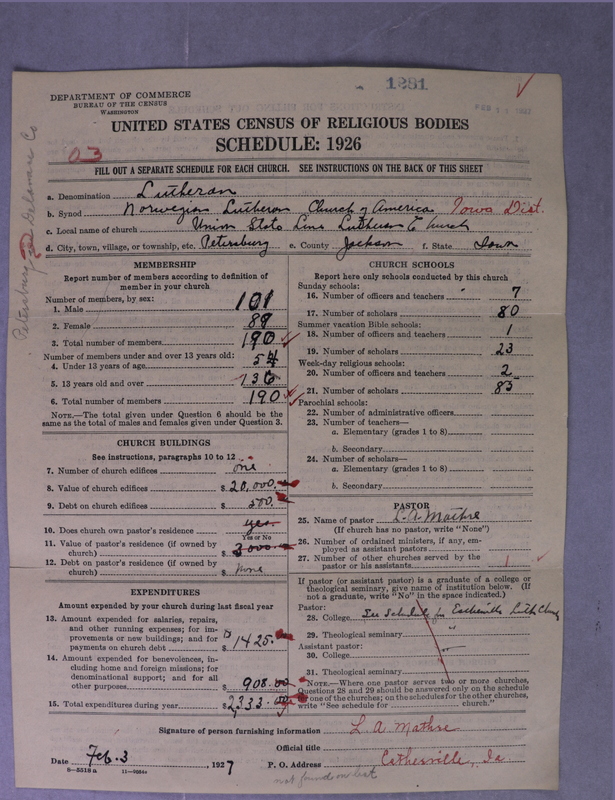 1281
DEPARTMENT OF COMMERCE
BUREAU OF THE CENSUS
WASHINGTON
UNITED STATES CENSUS OF RELIGIOUS BODIES
SCHEDULE: 1926
03
FILL OUT A SEPARATE SCHEDULE FOR EACH CHURCH. SEE INSTRUCTIONS ON THE BACK OF THIS SHEET
a. Denomination Lutheran
b. Synod Norwegian Lutheran Church of America Iowa Dist.
c. Local name of church Union State Line Lutheran Church
d. City, town, village, or township, etc. Petersburg e. County Jackson f. State Iowa
MEMBERSHIP
Report number of members according to definition of member in your church
Number of members, by sex:
1. Male 101
2. Female 89
3. Total number of members 190
Number of members under and over 13 years old:
4. Under 13 years of age 54
5. 13 years old and over 136
6. Total number of members 190
NOTE.—The total given under Question 6 should be the same as the total of males and females given under Question 3.
CHURCH BUILDINGS
See instructions, paragraphs 10 to 12
7. Number of church edifices one
8. Value of church edifices $ 20,000.
9. Debt on church edifices $ 500.
10. Does church own pastor's residence yes
Yes or No
11. Value of pastor's residence (if owned by church) $ 3000.
12. Debt on pastor's residence (if owned by church) $ None
EXPENDITURES
Amount expended by your church during last fiscal year
13. Amount expended for salaries, repairs, and other running expenses; for improvements or new buildings; and for payments on church debt $ 1425.
14. Amount expended for benevolences, including home and foreign missions; for denominational support; and for all other purposes $ 908.00
15. Total expenditures during year $ 2,333.00
CHURCH SCHOOLS
Report here only schools conducted by this church
Sunday schools:
16. Number of officers and teachers 7
17. Number of scholars 80
Summer vacation Bible schools:
18. Number of officers and teachers 1
19. Number of scholars 23
Week-day religious schools:
20. Number of officers and teachers 2
21. Number of scholars 83
Parochial schools:
22. Number of administrative officers
23. Number of teachers—
a. Elementary (grades 1 to 8)
b. Secondary
24. Number of scholars—
a. Elementary (grades 1 to 8)
b. Secondary
PASTOR
25. Name of pastor L. A. Mathre
(If church has no pastor, write "None")
26. Number of ordained ministers, if any, employed as assistant pastors
27. Number of other churches served by the pastor or his assistants 1
If pastor (or assistant pastor) is a graduate of a college or theological seminary, give name of institution below. (If not a graduate, write "No" in the space indicated.)
Pastor:
28. College See Schedule for Estherville Luth Church
29. Theological seminary "
Assistant pastor:
30. College
31. Theological seminary
NOTE.—Where one pastor serves two or more churches, Questions 28 and 29 should be answered only on the schedule for one of the churches; on the schedules for the other churches, write "See schedule for church."
Signature of person furnishing information L. A. Mathre
Official title
Date Feb. 3, 1927 P. O. Address Estherville, Ia.
8—5318a